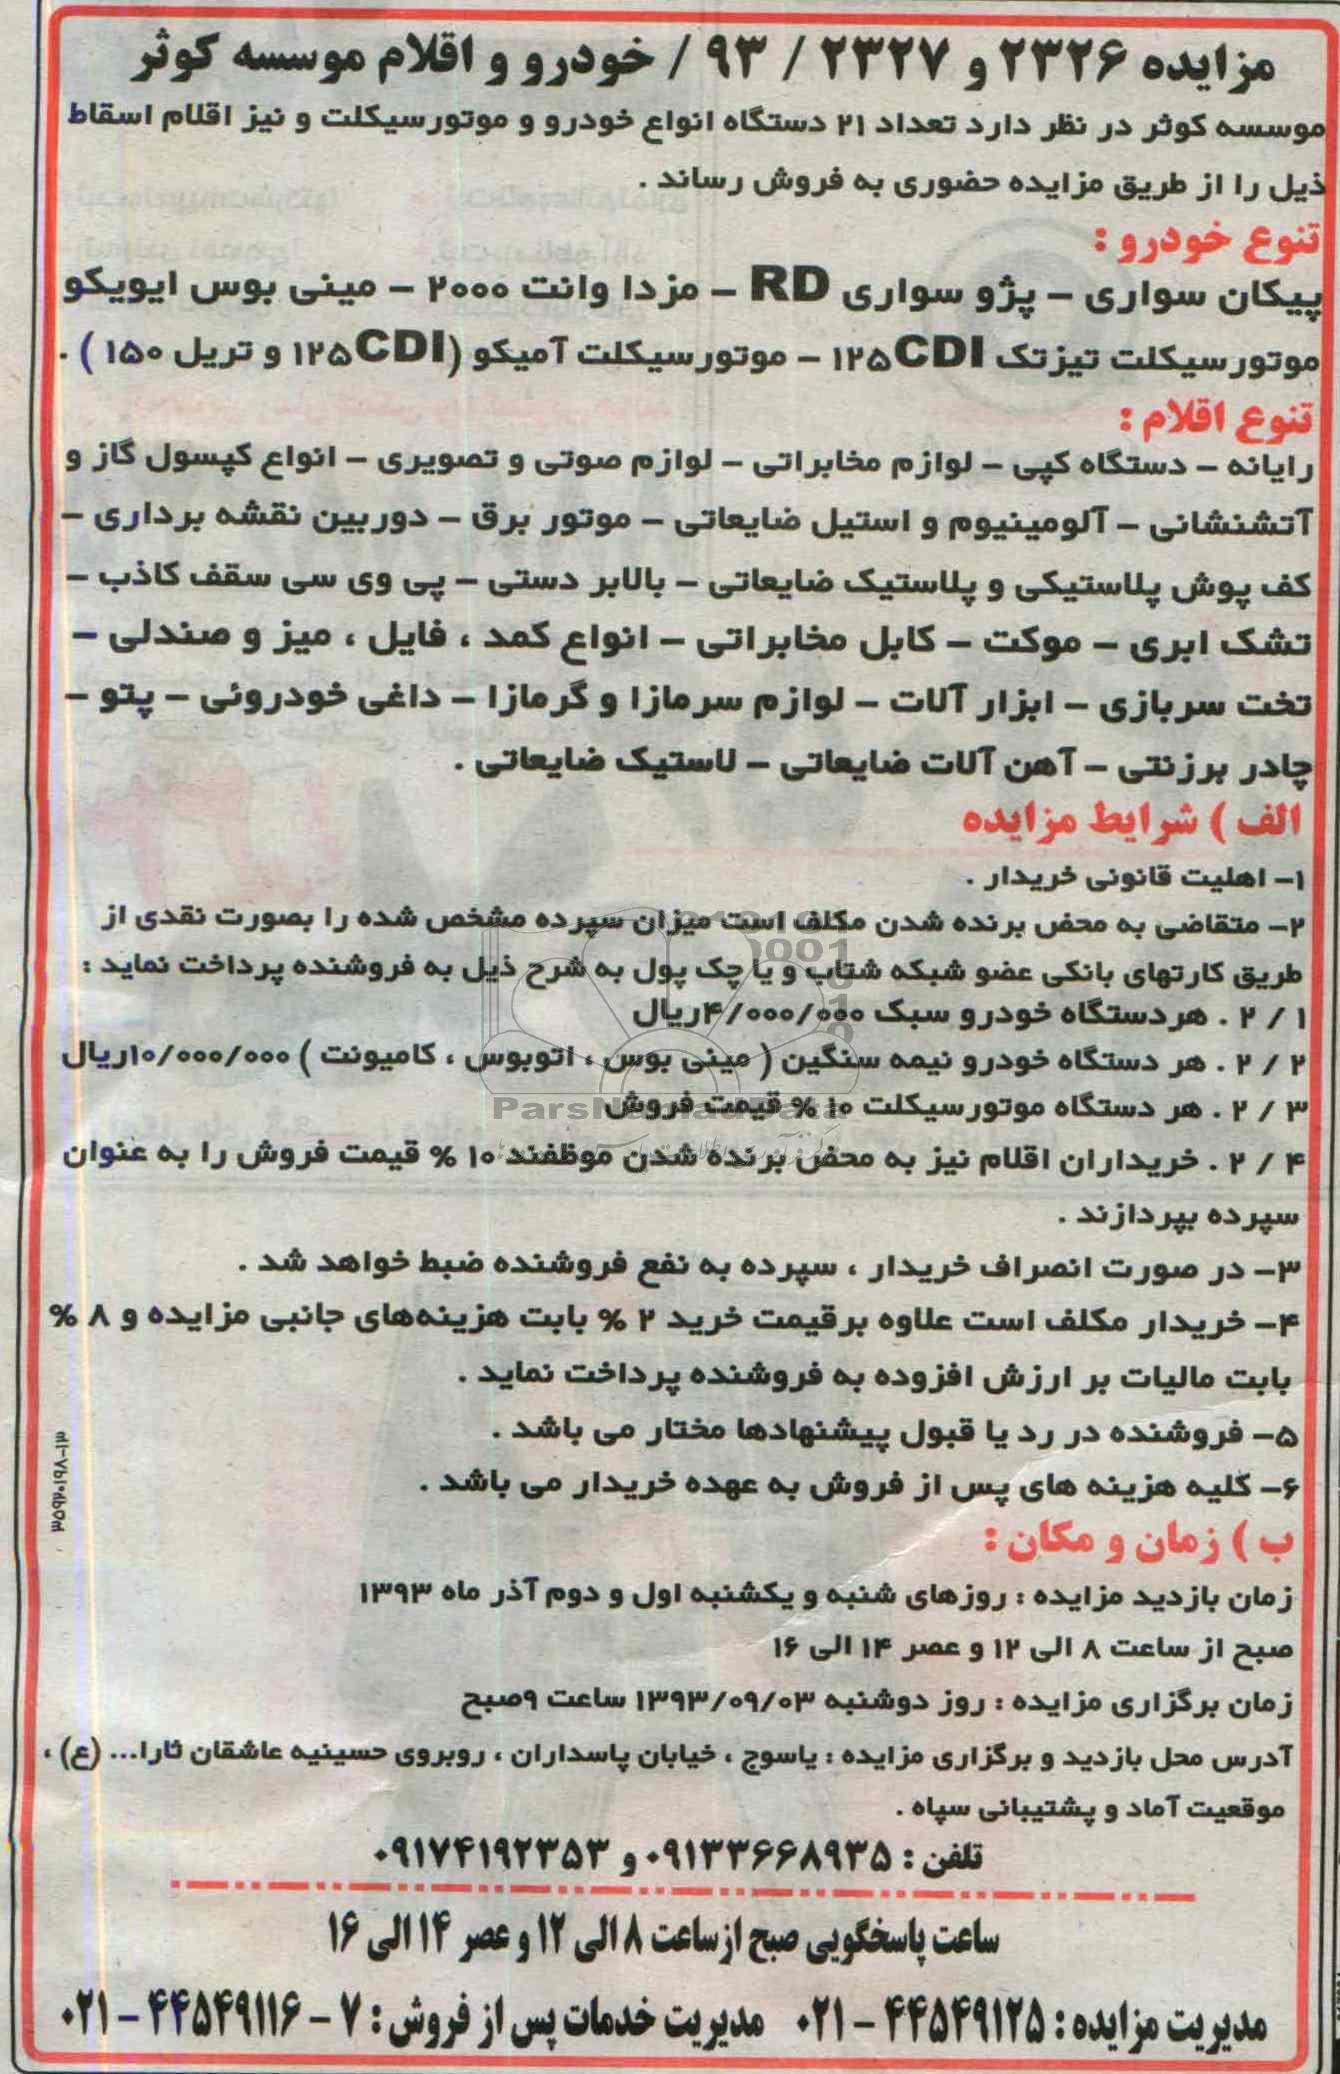 مزایده ۲۳۲۶ و ۲۳۲۷ / ۹۳ / خودرو و اقلام موسسه کوثر
موسسه کوثر در نظر دارد تعداد ۲۱ دستگاه انواع خودرو و موتورسیکلت و نیز اقلام اسقاط
ذیل را از طریق مزایده حضوری به فروش رساند .
تنوع خودرو :
پیکان سواری – پژو سواری RD – مزدا وانت ۲۰۰۰ – مینی بوس ایویکو
موتورسیکلت تیزتک ۱۲۵CDI – موتورسیکلت آمیکو (۱۲۵CDI و تریل ۱۵۰ ) .
تنوع اقلام :
رایانه – دستگاه کپی – لوازم مخابراتی – لوازم صوتی و تصویری – انواع کپسول گاز و
آتشنشانی – آلومینیوم و استیل ضایعاتی – موتور برق – دوربین نقشه برداری –
کف پوش پلاستیکی و پلاستیک ضایعاتی – بالابر دستی – پی وی سی سقف کاذب –
تشک ابری – موکت – کابل مخابراتی – انواع کمد ، فایل ، میز و صندلی –
تخت سربازی – ابزار آلات – لوازم سرمازا و گرمازا – داغی خودروئی – پتو –
چادر برزنتی – آهن آلات ضایعاتی – لاستیک ضایعاتی .
الف ) شرایط مزایده
۱– اهلیت قانونی خریدار .
۲– متقاضی به محض برنده شدن مکلف است میزان سپرده مشخص شده را بصورت نقدی از
طریق کارتهای بانکی عضو شبکه شتاب و یا چک پول به شرح ذیل به فروشنده پرداخت نماید :
۱ / ۲ . هردستگاه خودرو سبک ۴/۰۰۰/۰۰۰ریال
۲ / ۲ . هر دستگاه خودرو نیمه سنگین ( مینی بوس ، اتوبوس ، کامیونت ) ۱۰/۰۰۰/۰۰۰ریال
۳ / ۲ . هر دستگاه موتورسیکلت ۱۰ % قیمت فروش
ParsNamadData
۴ / ۲ . خریداران اقلام نیز به محض برنده شدن موظفند ۱۰ % قیمت فروش را به عنوان
سپرده بپردازند .
۳– در صورت انصراف خریدار ، سپرده به نفع فروشنده ضبط خواهد شد .
۴– خریدار مکلف است علاوه برقیمت خرید ۲ % بابت هزینه‌های جانبی مزایده و ۸ %
بابت مالیات بر ارزش افزوده به فروشنده پرداخت نماید .
۵– فروشنده در رد یا قبول پیشنهادها مختار می باشد .
۶– کلیه هزینه های پس از فروش به عهده خریدار می باشد .
ب ) زمان و مکان :
زمان بازدید مزایده : روزهای شنبه و یکشنبه اول و دوم آذر ماه ۱۳۹۳
صبح از ساعت ۸ الی ۱۲ و عصر ۱۴ الی ۱۶
زمان برگزاری مزایده : روز دوشنبه ۱۳۹۳/۰۹/۰۳ ساعت ۹صبح
آدرس محل بازدید و برگزاری مزایده : یاسوج ، خیابان پاسداران ، روبروی حسینیه عاشقان ثارا... (ع) ،
موقعیت آماد و پشتیبانی سپاه .
تلفن : ۰۹۱۳۳۶۶۸۹۳۵ و ۰۹۱۷۴۱۹۲۳۵۳
ساعت پاسخگویی صبح ازساعت ۸ الی ۱۲ و عصر ۱۴ الی ۱۶
مدیریت مزایده : ۴۴۵۴۹۱۲۵ – ۰۲۱ مدیریت خدمات پس از فروش : ۷ – ۴۴۵۴۹۱۱۶ – ۰۲۱